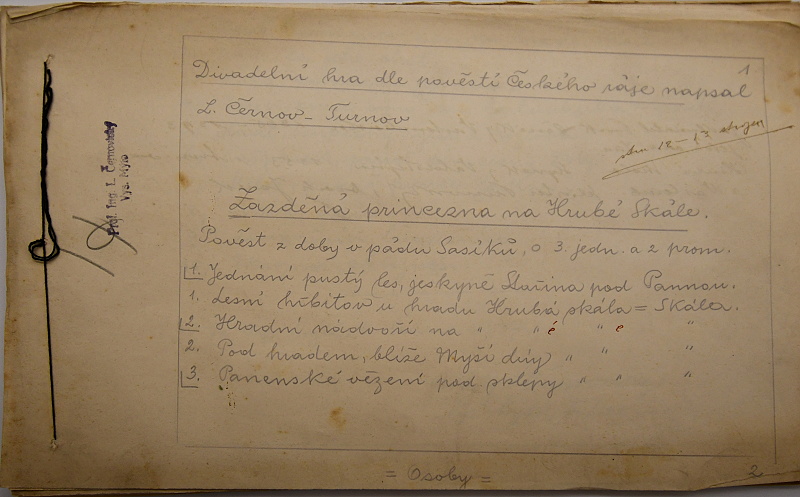 1
Divadelní hra dle pověstí Českého ráje napsal
L. Černov - Turnov
Prof. Ing. L. Černovický
Vys. Mýto
Zazděná princezna na Hrubé Skále.
Pověst z doby vpádu Sasíků, o 3. jedn. a 2 prom.
1. Jednání pustý les, jeskyně Stařina pod Pannou.
1. Lesní hřbitov u hradu Hrubá skála = Skála.
2. Hradní nádvoří na " " é " e "
2. Pod hradem, blíže Myší díry " " "
3. Panenské vězení pod sklepy " " "
= Osoby =
2